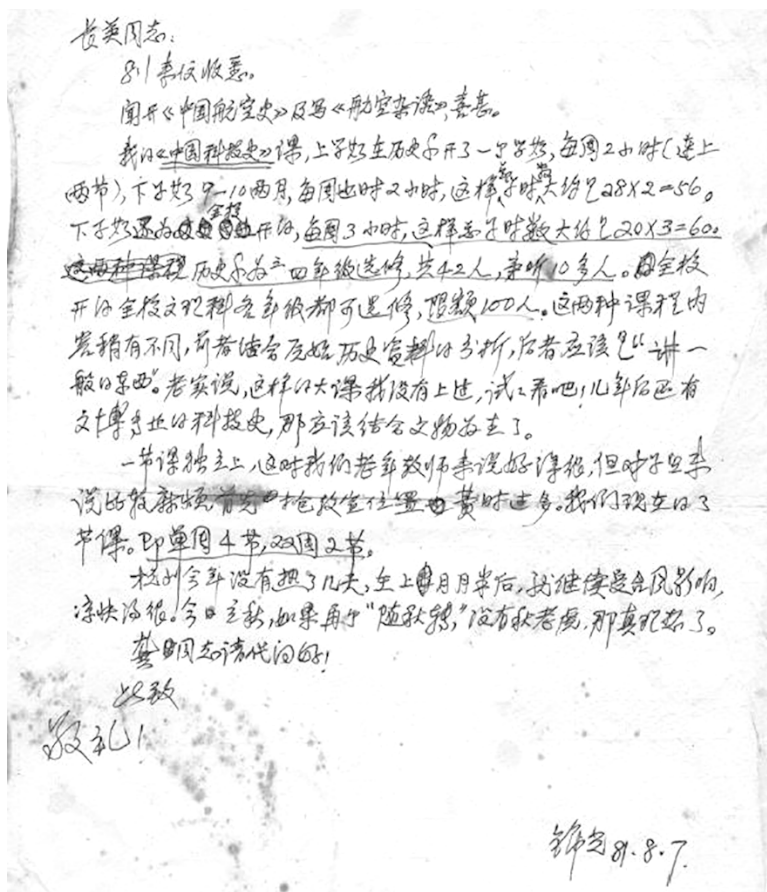 长英同志:
8/1来信收悉。
闻开《中国航空史》及写《航空杂谈》,喜甚。
我的《中国科技史》课,上学期在历史系开了一个学期,每周2小时(连上
两节),下学期9-10两月,每周也时2小时,这样总学时数大约是28×2=56。
下学期还为全校开的,每周3小时,这样总学时数大约是20×3=60。
历史系为三四年级选修,共42人,旁听10多人。全校
开的全校文理科各年级都可选修,限额100人。这两种课程内
容稍有不同,前者结合原始历史资料的分析,后者应该是“讲一
般的东西”。老实说,这样的大课我没有上过,试试看吧!几年后还有
文博专业的科技史,那应该结合文物为主了。
一节课独立上,这对我们老年教师来说好得很,但对学生来
说比较麻烦 抢教室位置费时过多。我们现在的3
节课。即单周4节,双周2节。
杭州今年没有热了几天,至上月月半后,就继续受台风影响,
凉快得很。今日立秋,如果再于“随秋转”,没有秋老虎,那真理想了。
龚 同志请代问好!
此致
敬礼!
锦光 81.8.7.